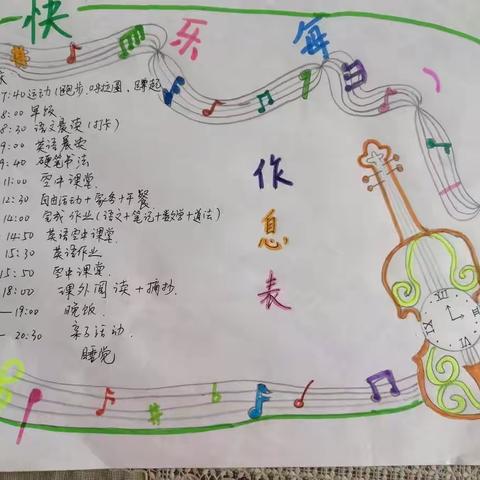 快乐每一
作息表
床
7:40 运动(跑步、呼拉圈、蹲起
8:00 早饭
8:30 语文晨读(打卡)
9:00 英语晨读
9:40 硬笔书法
11:00 空中课堂
12:30 自由活动+家务+午餐
14:00 完成作业(语文+笔记+数学+道法)
14:50 英语空中课堂
15:30 英语作业
15:50 空中课堂
18:00 课外阅读+摘抄
—19:00 晚饭
—20:30 亲子活动
睡觉